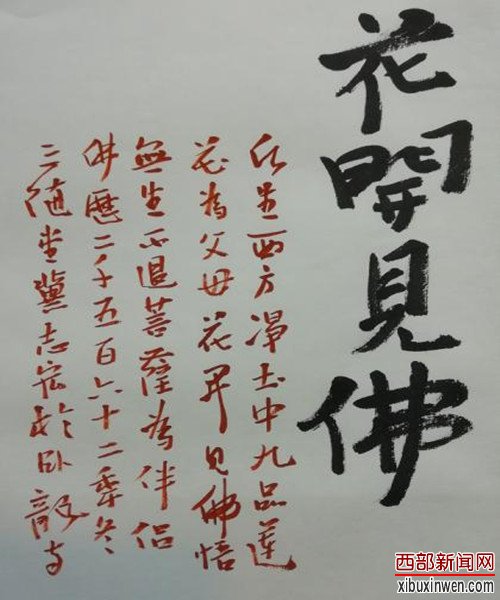 花開見佛
生西方淨土中九品蓮
花為父母花開見佛悟
無生不退菩薩為伴侶
佛歷二千五百六十二年冬
三隨堂冀志宏於卧龍寺
西部新闻网
xibuxinwen.com